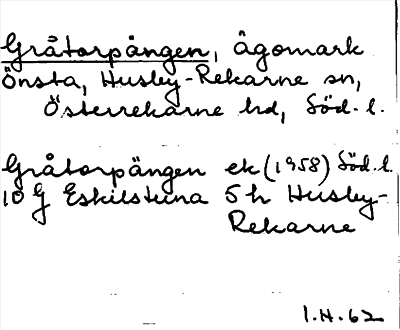 Gråtorpängen, ägomark
Önsta, Husby-Rekarne sn,
Österrekarne hd, Söd. l.
Gråtorpängen ek (1958) Söd. l.
10 G Eskilstuna 5h Husby-
Rekarne
I.H. 62